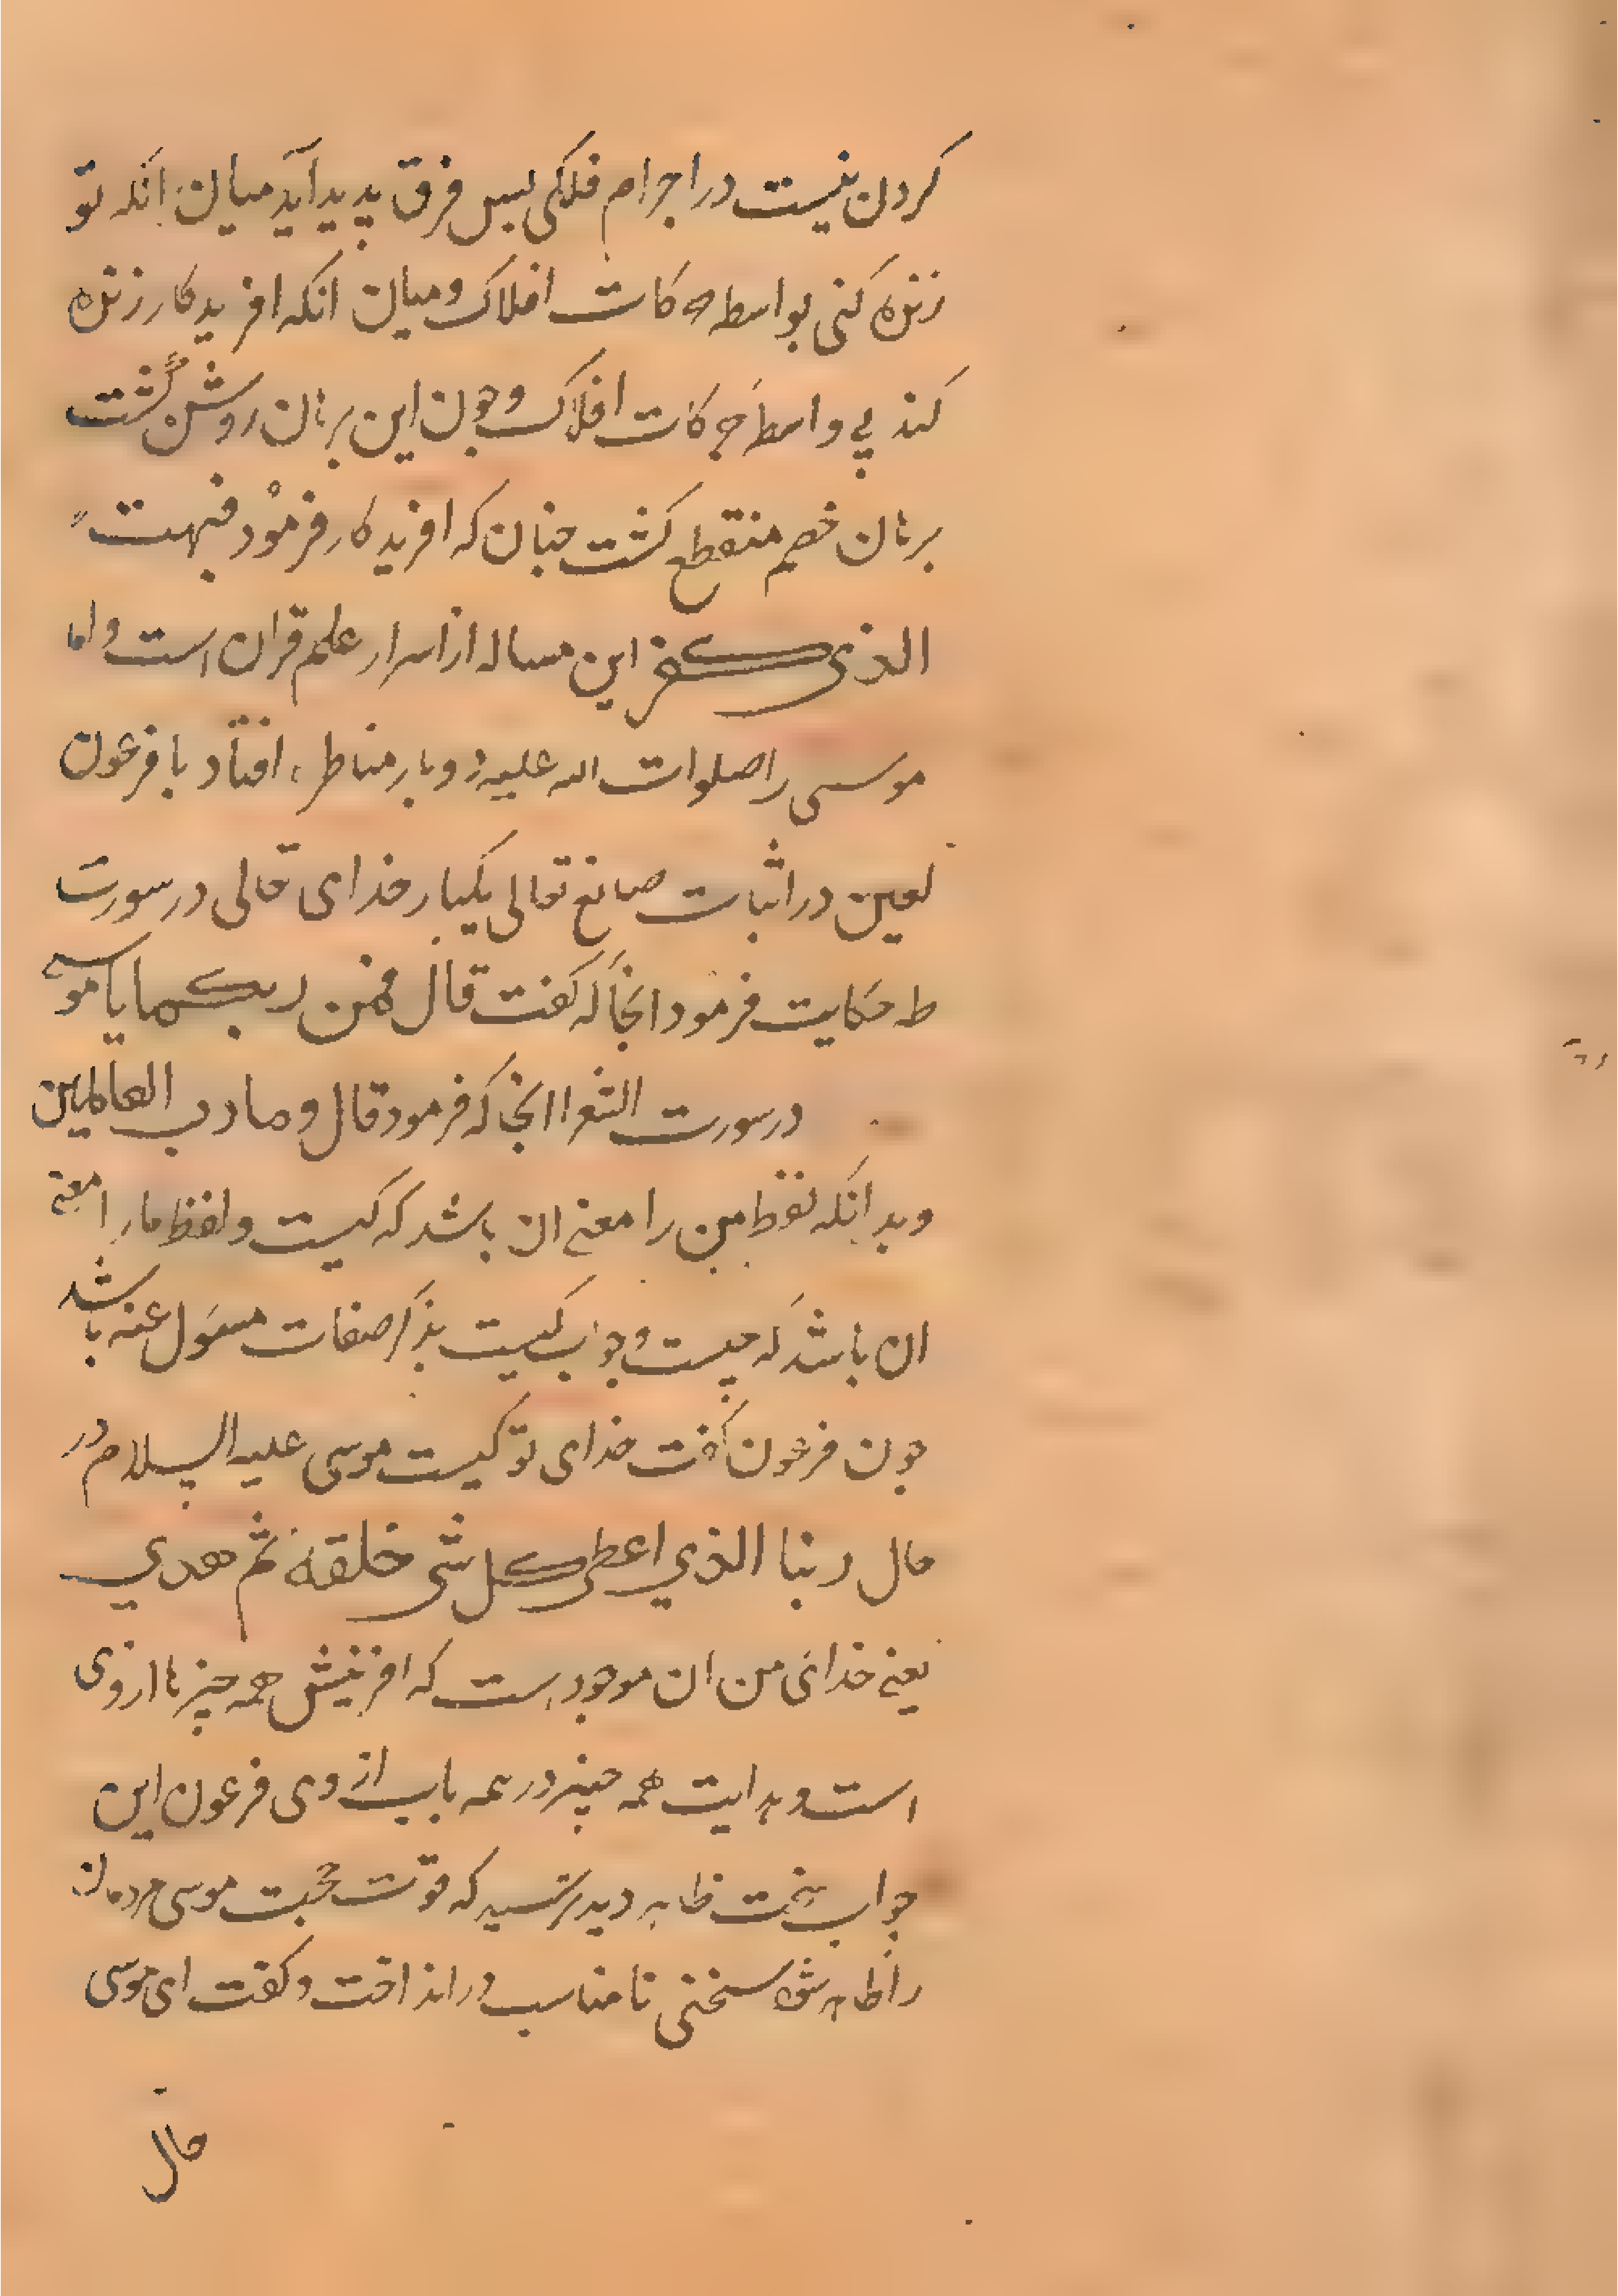 کردن نیست در اجرام فلکی بس فرق پدید آید میان انکه تو
زنده کنی بواسطه حرکات افلاک و میان انکه افریدکار زنده
کند بی واسطه حرکات افلاک و جون این برهان روشن کشت
برهان خصم منقطع کشت جنان که افریدکار فرمود فبهت
الذی کفر این مساله از اسرار علم قران است و اما
موسی را صلوات الله علیه دو بار مناظره افتاد با فرعون
لعین در اثبات صانع تعالی یکبار خدای تعالی در سورت
طه حکایت فرمود انجا که کفت قال فمن ربکما یا موسی
در سورت الشعرا انجا که فرمود قال وما رب العالمین
و بدانکه لفظ من را معنی ان باشد که کیست و لفظ ما را معنی
ان باشد که جیست و جواب کیست بذکر صفات مسول عنه باشد
جون فرعون کفت خدای تو کیست موسی علیه السلام در
حال ربنا الذي اعطی کل شی خلقه ثم هدي
یعنی خدای من ان موجودست که افرینش همه چیزها ازوی
است و هدایت همه چیز در همه باب از وی فرعون این
جواب سخت ظاهر دید بترسید که قوت حجت موسی مردمان
را ظاهر شود سخنی نامناسب در انداخت و کفت ای موسی
حال